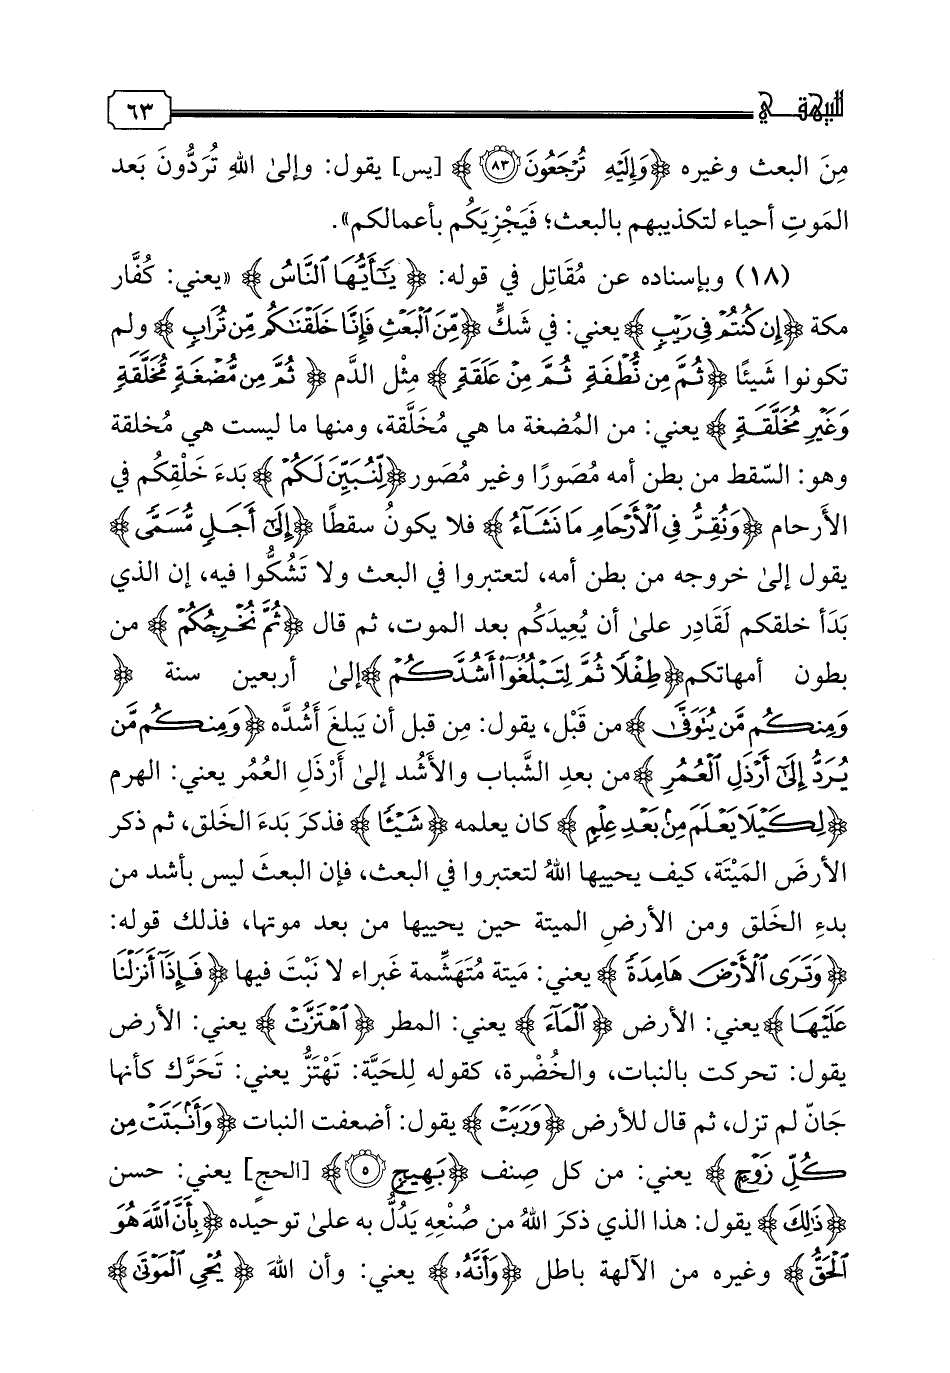 للبيهقي
٦٣
مِنَ البعث وغيره ﴿وَإِلَيْهِ تُرْجَعُونَ ٨٣﴾ [يس] يقول: وإلىٰ اللهِ تُرَدُّونَ بَعد
المَوتِ أحياء لتكذيبهم بالبعث؛ فَيَجْزِيَكُم بأعمالكم».
(١٨) وبإسناده عن مُقَاتِل في قوله: ﴿يَٰٓأَيُّهَا ٱلنَّاسُ﴾ «يعني: كُفَّار
مكة ﴿إِن كُنتُمْ فِى رَيْبٍ﴾ يعني: في شَكٍّ ﴿مِّنَ ٱلْبَعْثِ فَإِنَّا خَلَقْنَٰكُم مِّن تُرَابٍ﴾ ولم
تكونوا شَيئًا ﴿ثُمَّ مِن نُّطْفَةٍ ثُمَّ مِنْ عَلَقَةٍ﴾ مِثْل الدَّم ﴿ثُمَّ مِن مُّضْغَةٍ مُّخَلَّقَةٍ
وَغَيْرِ مُخَلَّقَةٍ﴾ يعني: من المُضغة ما هي مُخَلَّقة، ومنها ما ليست هي مُخلقة
وهو: السّقط من بطن أمه مُصَورًا وغير مُصَور ﴿لِّنُبَيِّنَ لَكُمْ﴾ بَدءَ خَلْقِكُم في
الأَرحام ﴿وَنُقِرُّ فِى ٱلْأَرْحَامِ مَا نَشَآءُ﴾ فلا يكونُ سقطًا ﴿إِلَىٰٓ أَجَلٍ مُّسَمًّى﴾
يقول إلىٰ خروجه من بطن أمه، لتعتبروا في البعث ولا تَشكُّوا فيه، إن الذي
بَدَأ خلقكم لَقَادِر علىٰ أن يُعِيدَكُم بعد الموت، ثم قال ﴿ثُمَّ نُخْرِجُكُمْ﴾ من
بطون أمهاتكم ﴿طِفْلًا ثُمَّ لِتَبْلُغُوٓا۟ أَشُدَّكُمْ﴾ إلىٰ أربعين سنة ﴿
وَمِنكُم مَّن يُتَوَفَّىٰ﴾ من قَبْل، يقول: مِن قبل أن يَبلغَ أَشُدَّه ﴿وَمِنكُم مَّن
يُرَدُّ إِلَىٰٓ أَرْذَلِ ٱلْعُمُرِ﴾ من بعدِ الشَّباب والأَشُد إلىٰ أَرْذَلِ العُمُر يعني: الهرم
﴿لِكَيْلَا يَعْلَمَ مِنۢ بَعْدِ عِلْمٍ﴾ كان يعلمه ﴿شَيْـًٔا﴾ فذكرَ بَدءَ الخَلق، ثم ذكر
الأرضَ المَيْتَة، كيف يحييها اللهُ لتعتبروا في البعث، فإن البعثَ ليس بأشد من
بدءِ الخَلق ومن الأرضِ الميتة حين يحييها من بعد موتها، فذلك قوله:
﴿وَتَرَى ٱلْأَرْضَ هَامِدَةً﴾ يعني: مَيتة مُتَهَشِّمة غَبراء لا نَبْتَ فيها ﴿فَإِذَآ أَنزَلْنَا
عَلَيْهَا﴾ يعني: الأرض ﴿ٱلْمَآءَ﴾ يعني: المطر ﴿ٱهْتَزَّتْ﴾ يعني: الأرض
يقول: تحركت بالنبات، والخُضْرة، كقوله لِلحَيَّة: تَهْتَزُّ يعني: تَحَرَّك كأنها
جَانّ لم تزل، ثم قال للأرض ﴿وَرَبَتْ﴾ يقول: أضعفت النبات ﴿وَأَنۢبَتَتْ مِن
كُلِّ زَوْجٍ﴾ يعني: من كل صِنف ﴿بَهِيجٍ ٥﴾ [الحج] يعني: حسن
﴿ذَٰلِكَ﴾ يقول: هذا الذي ذكرَ اللهُ من صُنْعِهِ يَدُلُّ به علىٰ توحيده ﴿بِأَنَّ ٱللَّهَ هُوَ
ٱلْحَقُّ﴾ وغيره من الآلهة باطل ﴿وَأَنَّهُۥ﴾ يعني: وأن اللهَ ﴿يُحْىِ ٱلْمَوْتَىٰ﴾